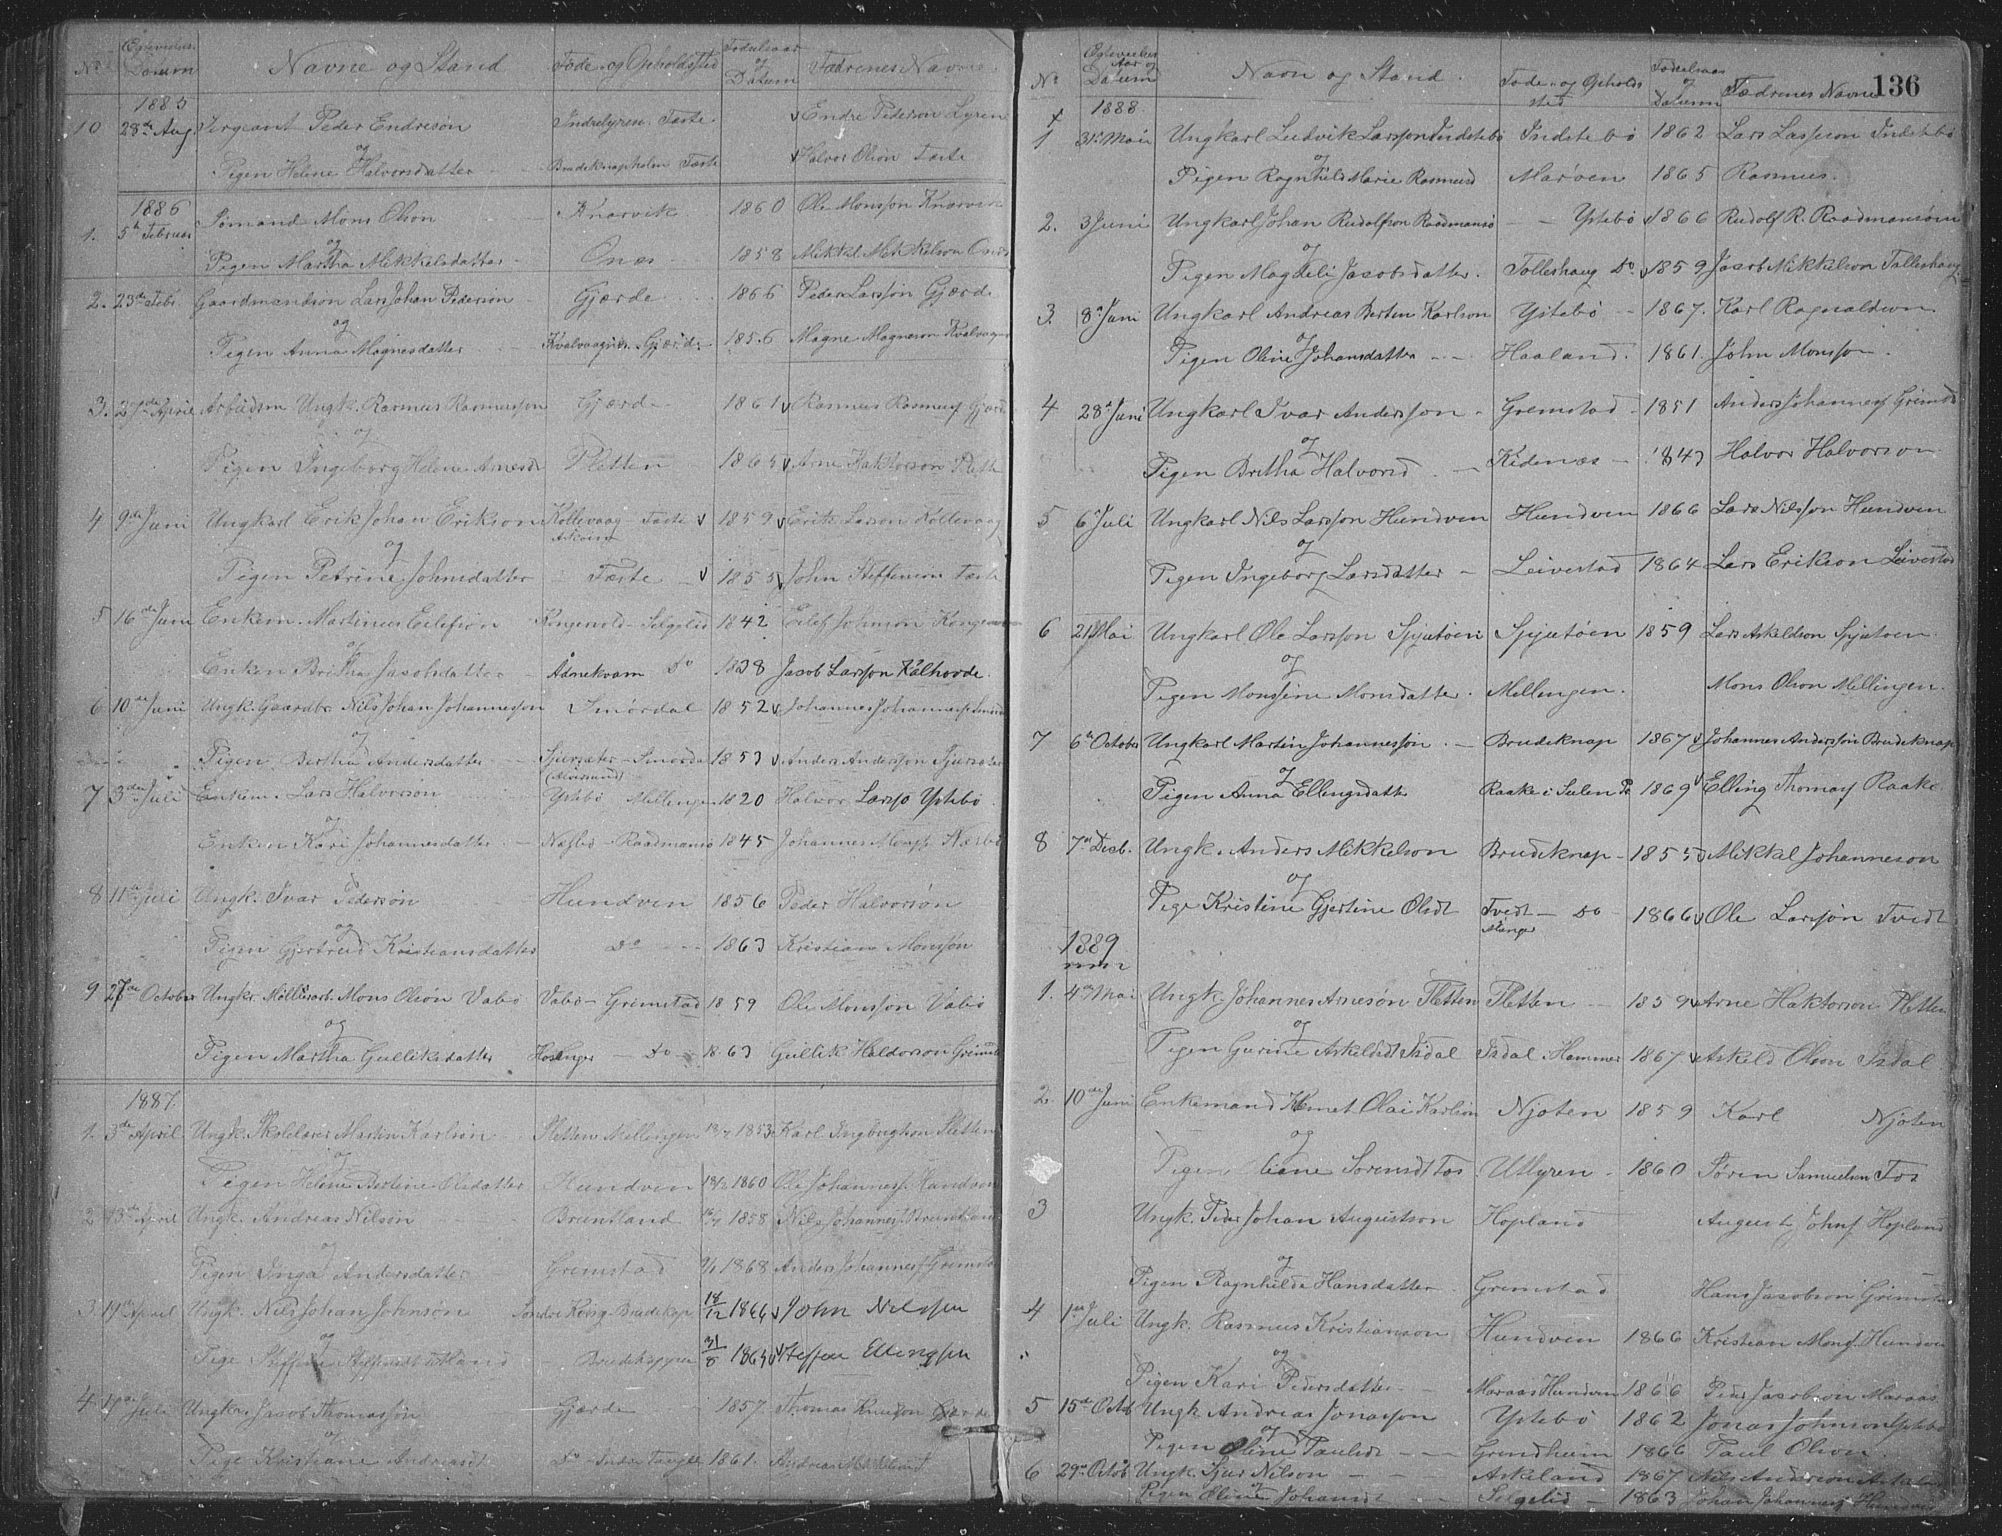 No Datum Navne og Stand Föde og Opholdssted Födselsaar og Datum Fædrenes Navne
1885
10 28de Aug. Sergeant Peder Endresön Indrelyren Fæste Endre Pederson Lyren
og
Pigen Helene Halvorsdatter Brudeknapholm Fæste Halvor Olsön Fæste
1886
1. 5te Februar Sömand Mons Olsön Knarvik 1860 Ole Monsson Knarvik
og
Pigen Martha Mikkelsdatter Onæs 1858 Mikkel Mikkelson Onæs
2. 23de Febr. Gaardmandsön Lars Johan Pedersön Gjærde 1866 Peder Larsson Gjærde
og
Pigen Anna Magnesdatter Kvalvaagnes Gjærde 1856 Magne Magneson Kvalvaagnes
3. 27de April Arbeidsm Ungk. Rasmus Rasmusson Gjærde 1861 Rasmus Rasmuss Gjærde
og
Pigen Ingeborg Helene Arnesd Sletten 1865 Arne Haktorson Slette
4 9de Juni Ungkarl Erik Johan Erikson Kollevaag Fæste 1859 Erik Larson Kollevaag
Askøen
og
Pigen Petrine Johnsdatter Fæste 1855 John Steffenson Fæste
5 16de Juni Enkem. Martinus Eilefson Kongsvold Selgelid 1842 Eilef Johnson Kongsvold
og
Enken Britha Jacobsdatter Ådnekvam Do 1838 Jacob Larsson Kålhovde.
6 10de Juni Ungk. Gaardbr. Nils Johan Johannesson Smördal 1852 Johannes Johanness Smördal
og
Pigen Bertha Andersdatter Sjursæter Smördal 1853 Anders Andersson Sjursæter
(Alversund)
7 3die Juli Enkem. Lars Halvorson Ystebö Mellingen 1820 Halvor Larss Ystebö
og
Enken Kari Johannesdatter Næsbö Raadmansö 1845 Johannes Monss Næsbö
8 11te Juli Ungk. Ivar Pedersön Hundven 1856 Peder Halvorsön
og
Pigen Gjertrud Kristiansdatter Do 1863 Kristian Monsson
9 27de October Ungkr. Möllearb. Mons Olsön Vabö Vabö Grimstad 1859 Ole Monsson Vabö
og
Pigen Martha Gulliksdatter Hosanger Do 1863 Gullik Haldorson Grimstad
1887.
1. 3de April Ungk. Skolelærer Martin Karlsön Sletten Mellingen 1853 Karl Ingbrigtson Sletten
og
Pigen Helene Bertine Olsdatter Hundven 1860 Ole Johanness Hundven
2 13de April Ungk. Andreas Nilson Bruntland 1858 Nils Johanness Bruntland
og
Pigen Inga Andersdatter Grimstad 1868 Anders Johanness Grimstad
3. 19de April Ungk. Nils Johan Johnsön Brudeknap 18/12 1866 John Nilssen
og
Pige Steffine Brudeknappen 31/8 1863 Steffen Ellingsen
4. Juli Ungkar Jacob Thomassön Gjærde 1857. Thomas Knutson Gjærde
og
Pige Kristiane Andreasdt Do 1861.

136
No Datum Navn og Stand. Föde- og Opholdssted Födselsaar og Datum Fædrenes Navne
1888
1 31te Mai Ungkarl Ludvik Larsson Indstebö Indstebö 1862 Lars Larsson Indstebö
og
Pigen Ragnhild Marie Rasmusd Maröen 1865 Rasmus.
2. 3 Juni Ungkarl Johan Rudolfson Raadmansö Ystebö 1866 Rudolf R. Raadmansöen
og
Pigen Magneli Jacobsdatter. Tolleshaug Do. 1859 Jacob Mikkelson Tolleshaug
3. 8de Juni Ungkarl Andreas Berten Karlson Ystebö 1867. Karl Ragnaldson
og
Pigen Oline Johansdatter Haaland. 1861. John Monsson.
4 28de Juni Ungkarl Ivar Andersson Gremstad 1851 Anders Johanness Grimstad
og
Pigen Britha Halvorsd Kidenæs 1843 Halvor Halvorson
5 6 Juli Ungkarl Nils Larsson Hundven Hundven 1866 Lars Nilsson Hundven
og
Pigen Ingeborg Larsdatter Leivestad 1864 Lars Erikson Leivestad
6 21 Mai Ungkarl Ole Larsson Spjutöen Spjutöen 1859 Lars Askeldson Spjutöen.
og
Pigen Monsine Monsdatter. Mellingen. Mons Olson Mellingen.
7 6te October Ungkarl Martin Johannesson. Brudeknap 1867 Johannes Andersson Brudeknap
og
Pigen Anna Ellingsdatter Raake i Sulen 1869 Elling Thomass Raake.
8 7de Decb. Ungk. Anders Mikkelson Brudeknap 1855 Mikkal Johanneson
og
Pige Kristine Gjertine Olsdt Tvedt Do 1866 Ole Larsson Tvedt
Manger
1889
1. 4de Mai Ungk. Johannes Arnesön Sletten Sletten 1859 Arne Haktorson Sletten
og
Pigen Gurine Askeldsdt Isdal Isdal i Hammer 1867 Askeld Olson Isdal
2. 10de Juni Enkemand Kornet Olai Karlson Njöten 1859 Karl Njöten
og
Pigen Sorensdt Fos Utlyren 1860 Sören Samuelsen Fos
3 Ungk. Peder Johan Augustson Hopland August Johns Hopland
og
Pigen Ragnhilda Hansdatter Grimstad Hans Jacobson Grimstad
4 1ste Juli Ungk. Rasmus Kristianson Hundven 1866 Kristian Monss Hundven
og
Pigen Kari Pedersdatter Maraas Hundven 1866 Peder Jacobson Maraas
5 15de Octob Ungk. Andreas Jonasson Ystebö 1862 Jonas Johnson Ystebö
og
Pigen Oline Paulsdt Grindheim 1866 Paul Olson.
6 29de Octob Ungk. Sjur Nilson Askeland 1867 Nils Anderson Askeland
og
Pigen Oline Johansdt Selgelid 1863 Johan Johanness